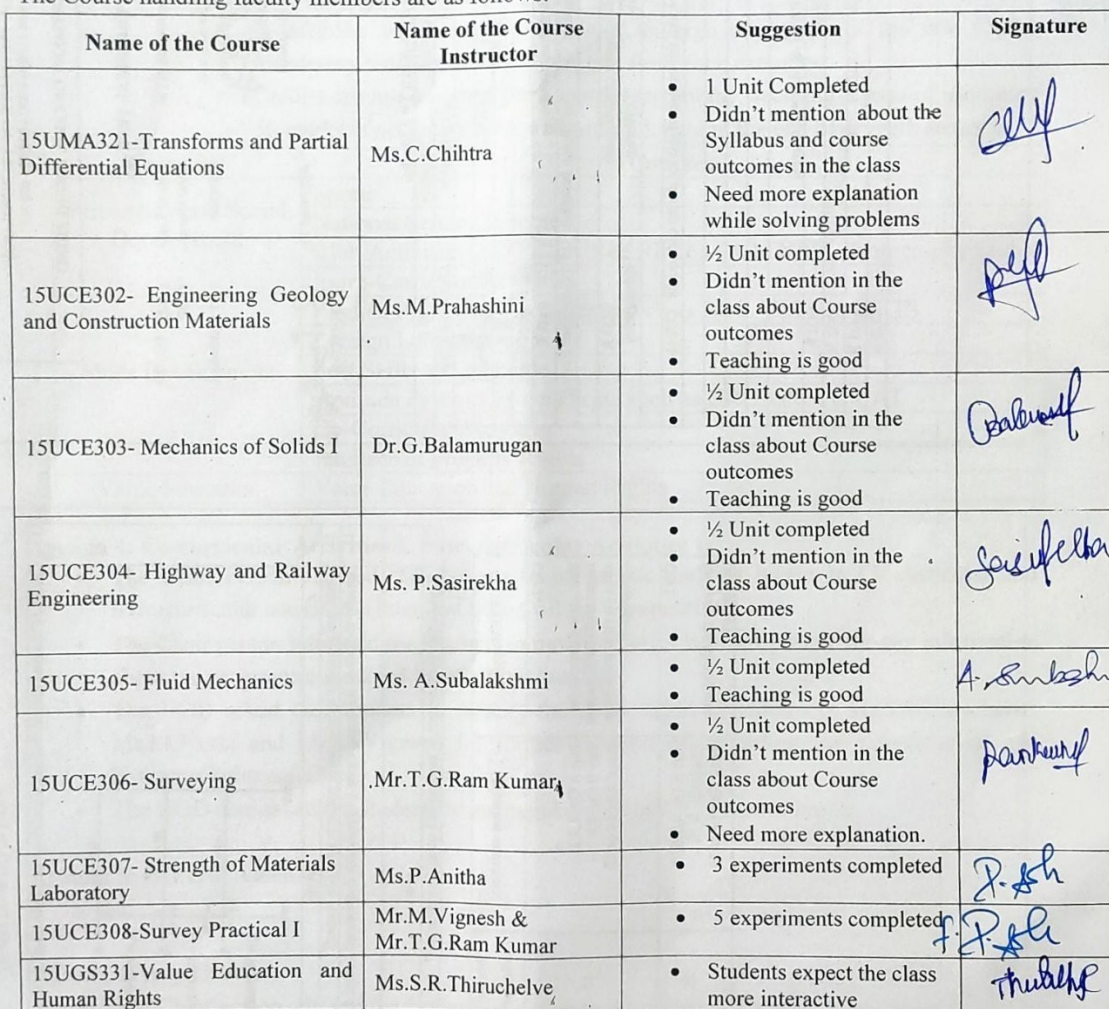 The Course handling faculty members are as follows:
Name of the Course
Name of the Course
Instructor
Suggestion
Signature
15UMA321-Transforms and Partial
Differential Equations
Ms.C.Chihtra
• 1 Unit Completed
• Didn't mention about the
Syllabus and course
outcomes in the class
• Need more explanation
while solving problems
15UCE302- Engineering Geology
and Construction Materials
Ms.M.Prahashini
• ½ Unit completed
• Didn't mention in the
class about Course
outcomes
• Teaching is good
15UCE303- Mechanics of Solids I
Dr.G.Balamurugan
• ½ Unit completed
• Didn't mention in the
class about Course
outcomes
• Teaching is good
15UCE304- Highway and Railway
Engineering
Ms. P.Sasirekha
• ½ Unit completed
• Didn't mention in the
class about Course
outcomes
• Teaching is good
15UCE305- Fluid Mechanics
Ms. A.Subalakshmi
• ½ Unit completed
• Teaching is good
15UCE306- Surveying
Mr.T.G.Ram Kumar
• ½ Unit completed
• Didn't mention in the
class about Course
outcomes
• Need more explanation.
15UCE307- Strength of Materials
Laboratory
Ms.P.Anitha
• 3 experiments completed
15UCE308-Survey Practical I
Mr.M.Vignesh &
Mr.T.G.Ram Kumar
• 5 experiments completed
15UGS331-Value Education and
Human Rights
Ms.S.R.Thiruchelve
• Students expect the class
more interactive